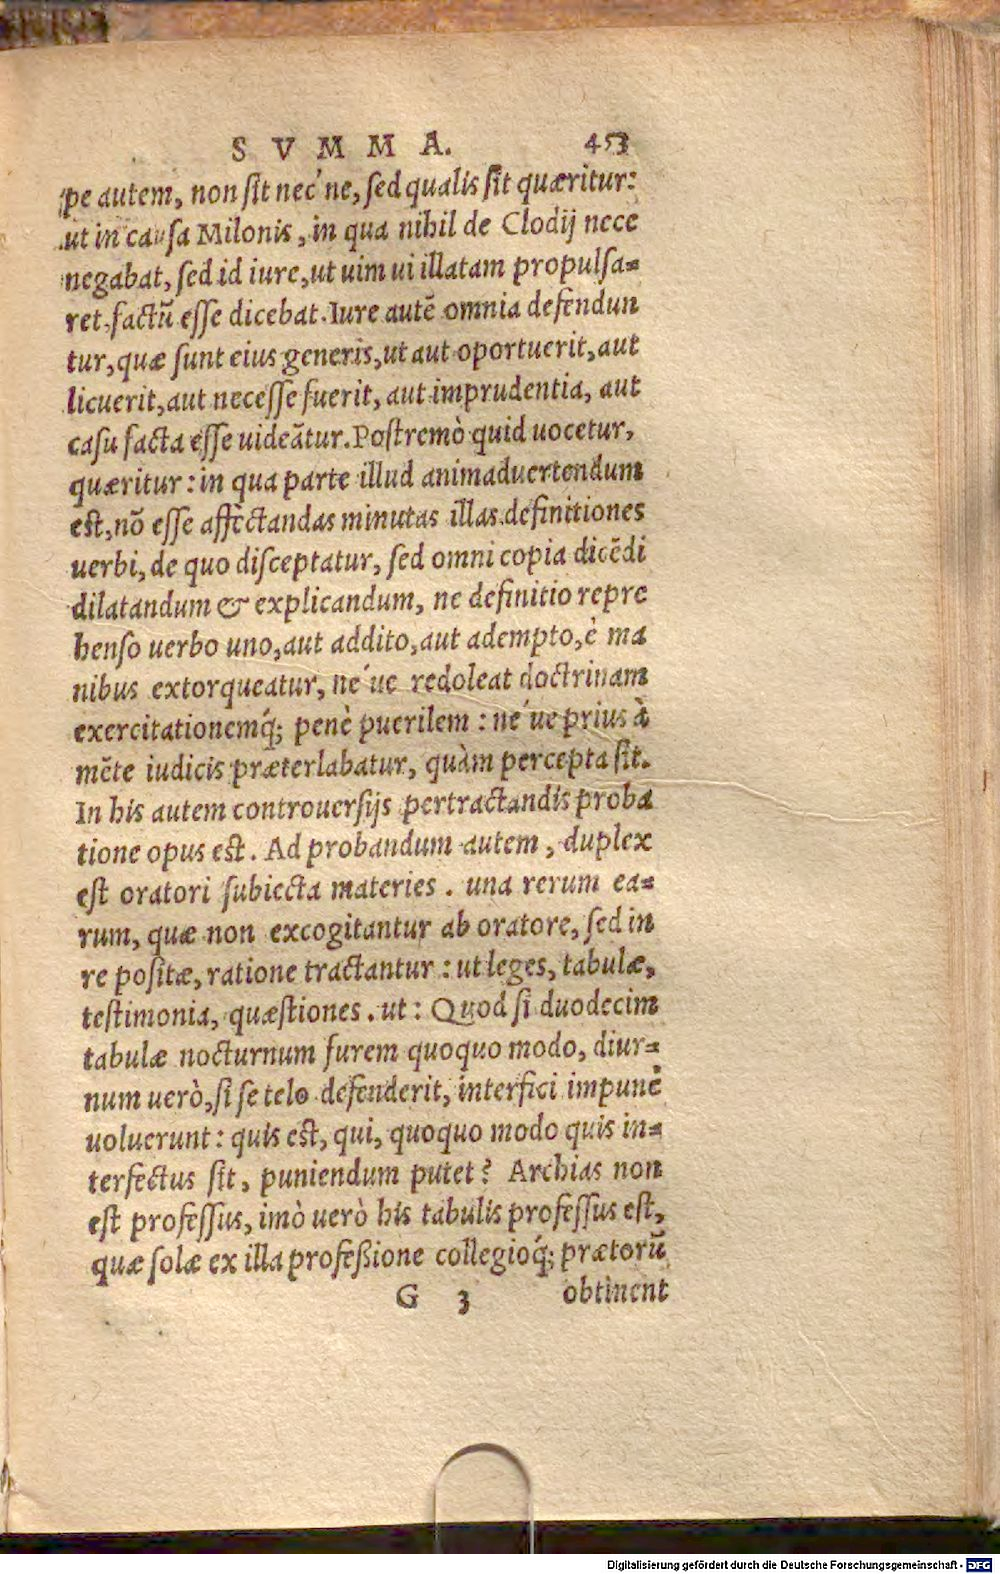 S V M M A. 453
pe autem, non sit nec'ne, sed qualis sit quæritur:
ut in causa Milonis, in qua nihil de Clodij nece
negabat, sed id iure, ut uim ui illatam propulsa=
ret, factũ esse dicebat. Iure autẽ omnia defendun
tur, quæ sunt eius generis, ut aut oportuerit, aut
licuerit, aut necesse fuerit, aut imprudentia, aut
casu facta esse uideãtur. Postremò quid uocetur,
quæritur: in qua parte illud animaduertendum
est, nõ esse affectandas minutas illas definitiones
uerbi, de quo disceptatur, sed omni copia dicẽdi
dilatandum & explicandum, ne definitio repre
henso uerbo uno, aut addito, aut adempto, è ma
nibus extorqueatur, ne'ue redoleat doctrinam
exercitationemq́; penè puerilem: ne'ue prius à
mẽte iudicis præterlabatur, quàm percepta sit.
In his autem controuersijs pertractandis proba
tione opus est. Ad probandum autem, duplex
est oratori subiecta materies. una rerum ea=
rum, quæ non excogitantur ab oratore, sed in
re positæ, ratione tractantur: ut leges, tabulæ,
testimonia, quæstiones. ut: Quod si duodecim
tabulæ nocturnum furem quoquo modo, diur=
num uerò, si se telo defenderit, interfici impunè
uoluerunt: quis est, qui, quoquo modo quis in=
terfectus sit, puniendum putet? Archias non
est professus, imò uerò his tabulis professus est,
quæ solæ ex illa profeßione collegioq́; prætorũ
G 3 obtinent
Digitalisierung gefördert durch die Deutsche Forschungsgemeinschaft - DFG